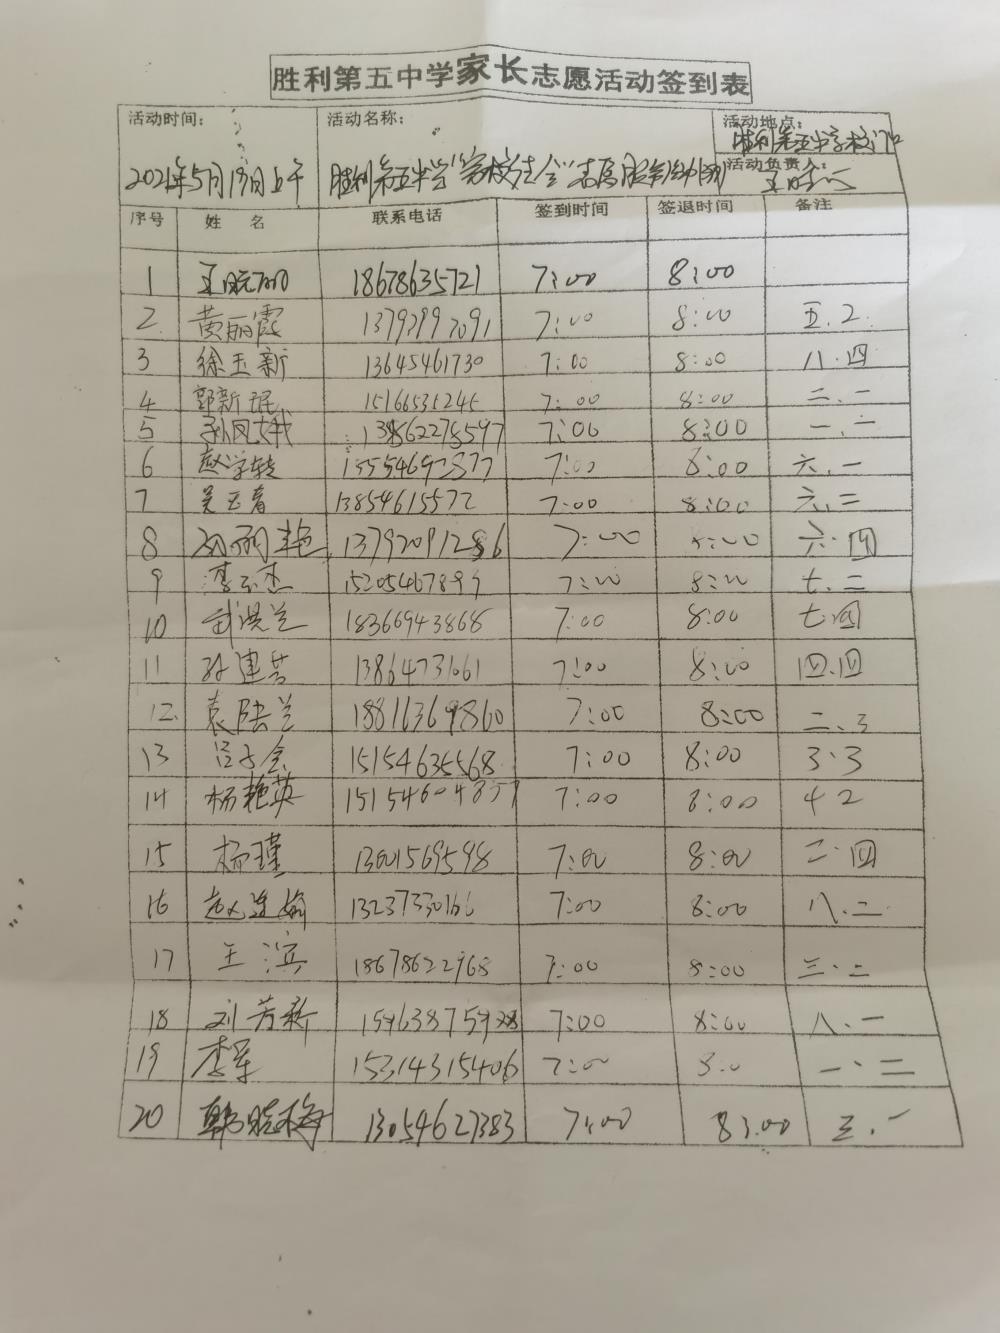 胜利第五中学家长志愿活动签到表
活动时间： 活动名称： 活动地点：
胜利第五中学校门口
2021年5月19日上午 胜利第五中学"家校社会"志愿服务 活动负责人：
序号 姓名 联系电话 签到时间 签退时间 备注
1 18678635721 7:00 8:00
2 黄丽霞 13793992091 7:00 8:00 五.2
3 徐玉新 13645461730 7:00 8:00 八.四
4 郭新珉 15166531245 7:00 8:00 二.一
5 孙凤娥 13862278597 7:00 8:00 一.一
6 赵学转 15554692877 7:00 8:00 六.一
7 吴玉春 13854615572 7:00 8:00 六.二
8 13792091286 7:00 8:00 六.四
9 李玉杰 15205467899 7:00 8:00 七.二
10 武洪兰 18366943868 7:00 8:00 七.四
11 孙建芳 13864731661 7:00 8:00 四.四
12. 袁 兰 18816369860 7:00 8:00 二、3
13 吕子会 15154635568 7:00 8:00 3.3
14 杨艳英 15154604857 7:00 8:00 4 2
15 杨瑾 13601569598 7:00 8:00 二.四
16 赵 13237330166 7:00 8:00 八.二
17 王滨 18678622968 7:00 8:00 三.二
18 刘芳新 7:00 8:00 八.一
19 李军 15314315406 7:00 8:0 一.二
20 韩晓梅 13054627383 7:00 8:00 三.一